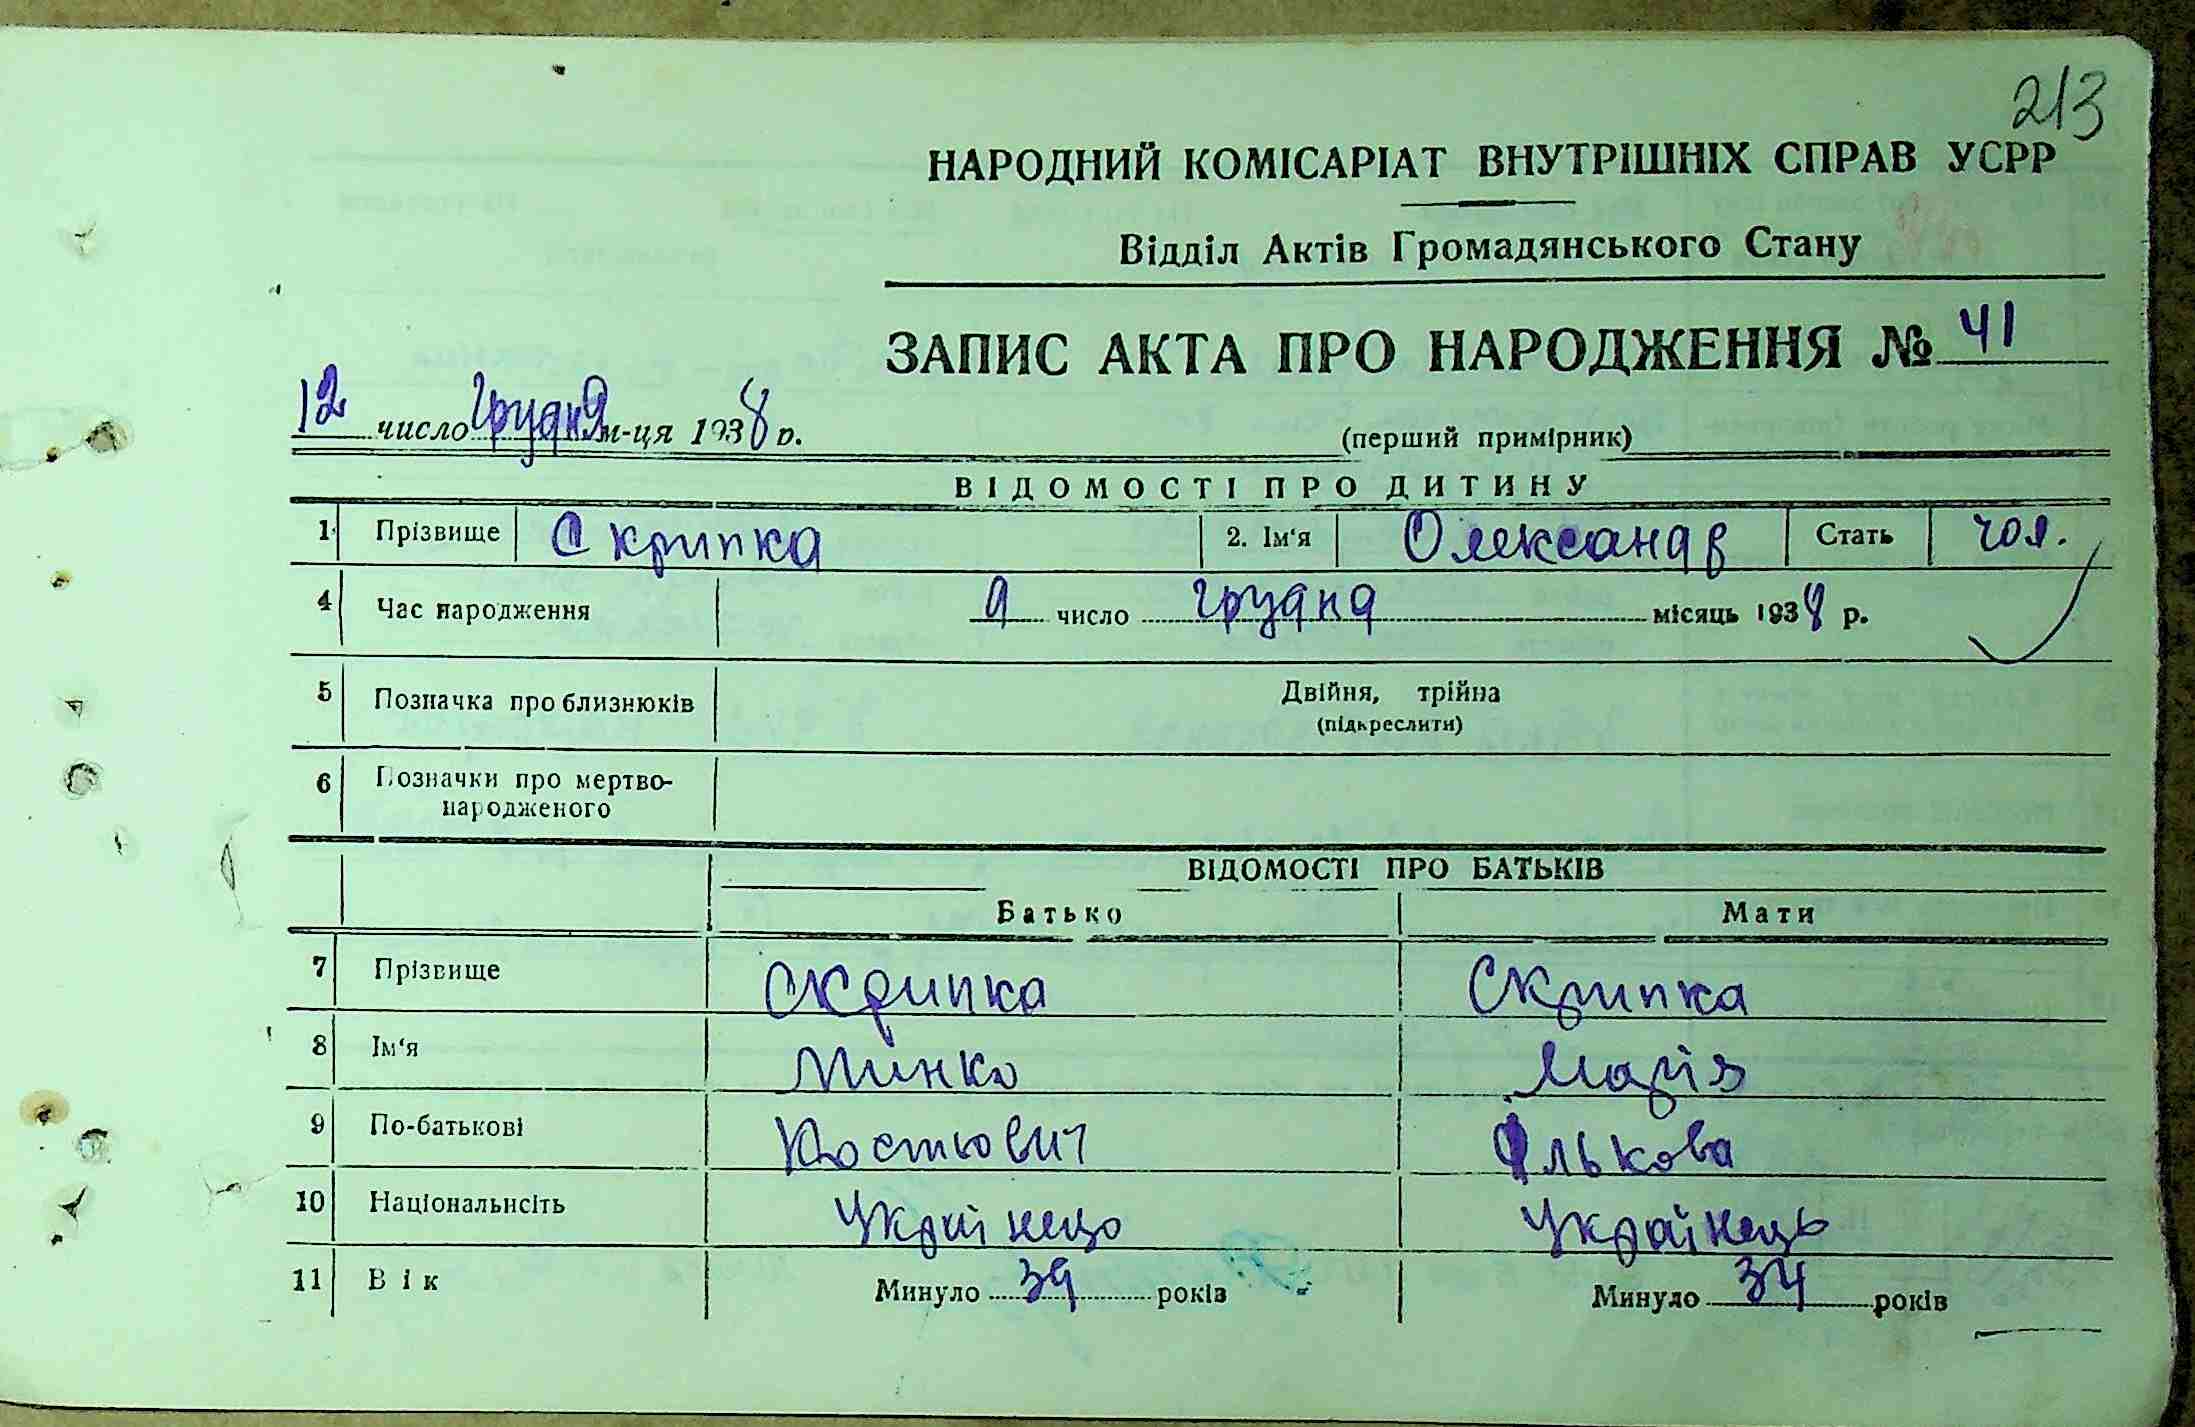 213
НАРОДНИЙ КОМІСАРІАТ ВНУТРІШНІХ СПРАВ УСРР
Відділ Актів Громадянського Стану
ЗАПИС АКТА ПРО НАРОДЖЕННЯ № 41
12 число Грудня м-ця 1938 р.
(перший примірник)
ВІДОМОСТІ ПРО ДИТИНУ
1. Прізвище Скрипка 2. Ім'я Олександр Стать чол.
4 Час народження 9 число грудня місяць 1938 р.
5 Позначка про близнюків Двійня, трійна
(підкреслити)
6 Позначки про мертво-
народженого
ВІДОМОСТІ ПРО БАТЬКІВ
Батько Мати
7 Прізвище Скрипка Скрипка
8 Ім'я Минко Марія
9 По-батькові Костьович Ількова
10 Національнсіть Украінець Украінець
11 Вік Минуло 39 років Минуло 34 років